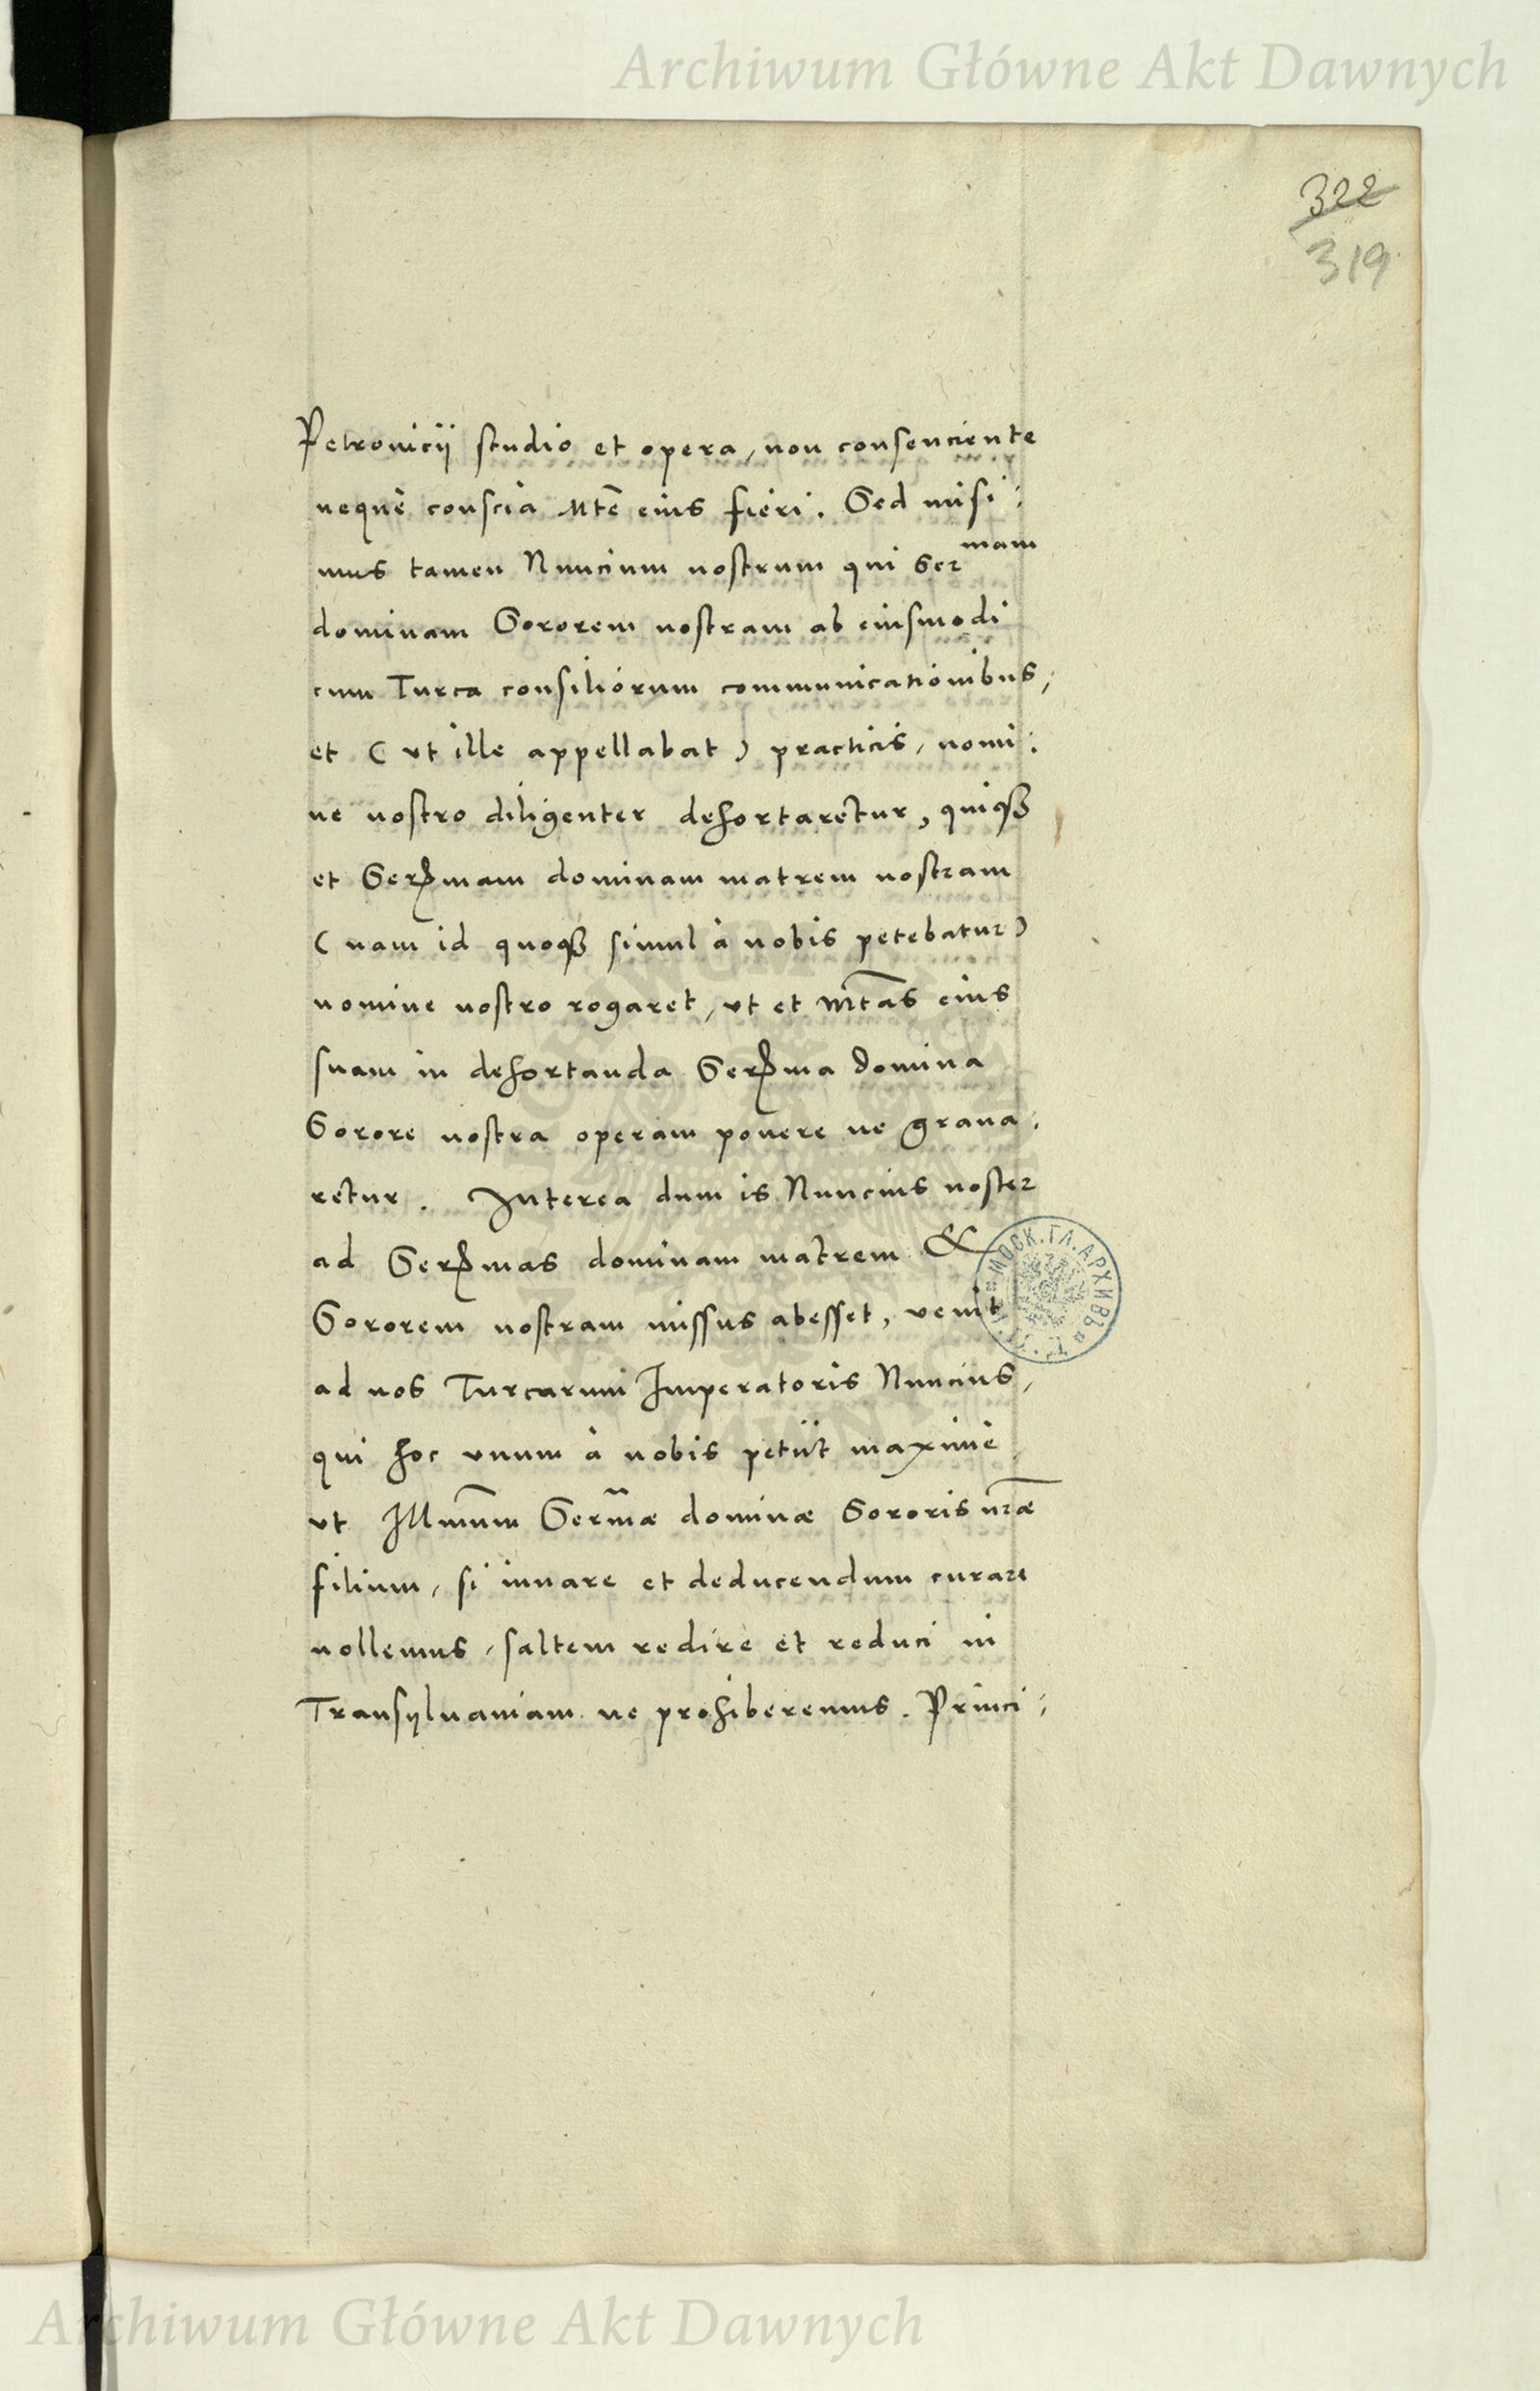 Archiwum Główne Akt Dawnych
322
319
Petrovicij studio et opera, non consenciente
neque conscia Mte eius fieri. Sed misi:
mus tamen Nuncium nostrum qui Ser mam
dominam Sororem nostram ab eiusmodi
cum Turca consiliorum communicationibus,
et ( vt ille appellabat ) practicis, nomi:
ne nostro diligenter dehortaretur, quiq3
et Serᵐmam dominam matrem nostram
( nam id quoq3 simul à nobis petebatur )
nomine nostro rogaret, vt et Mtas eius
suam in dehortanda Serᵐma domina
Sorore nostra operam ponere ne graua:
retur. Interea dum is Nuncius noster
ad Serᵐmas dominam matrem &
Sororem nostram missus abesset, venit
ad nos Turcarum Imperatoris Nuncius,
qui hoc vnum à nobis petiit maximè
vt Illmum Sermæ dominæ Sororis nræ
filium, si iuuare et deducendum curare
nollemus, saltem redire et reduci in
Transyluaniam ne prohiberemus. Princi:
МОСК. ГЛ. АРХИВЪ
Archiwum Główne Akt Dawnych